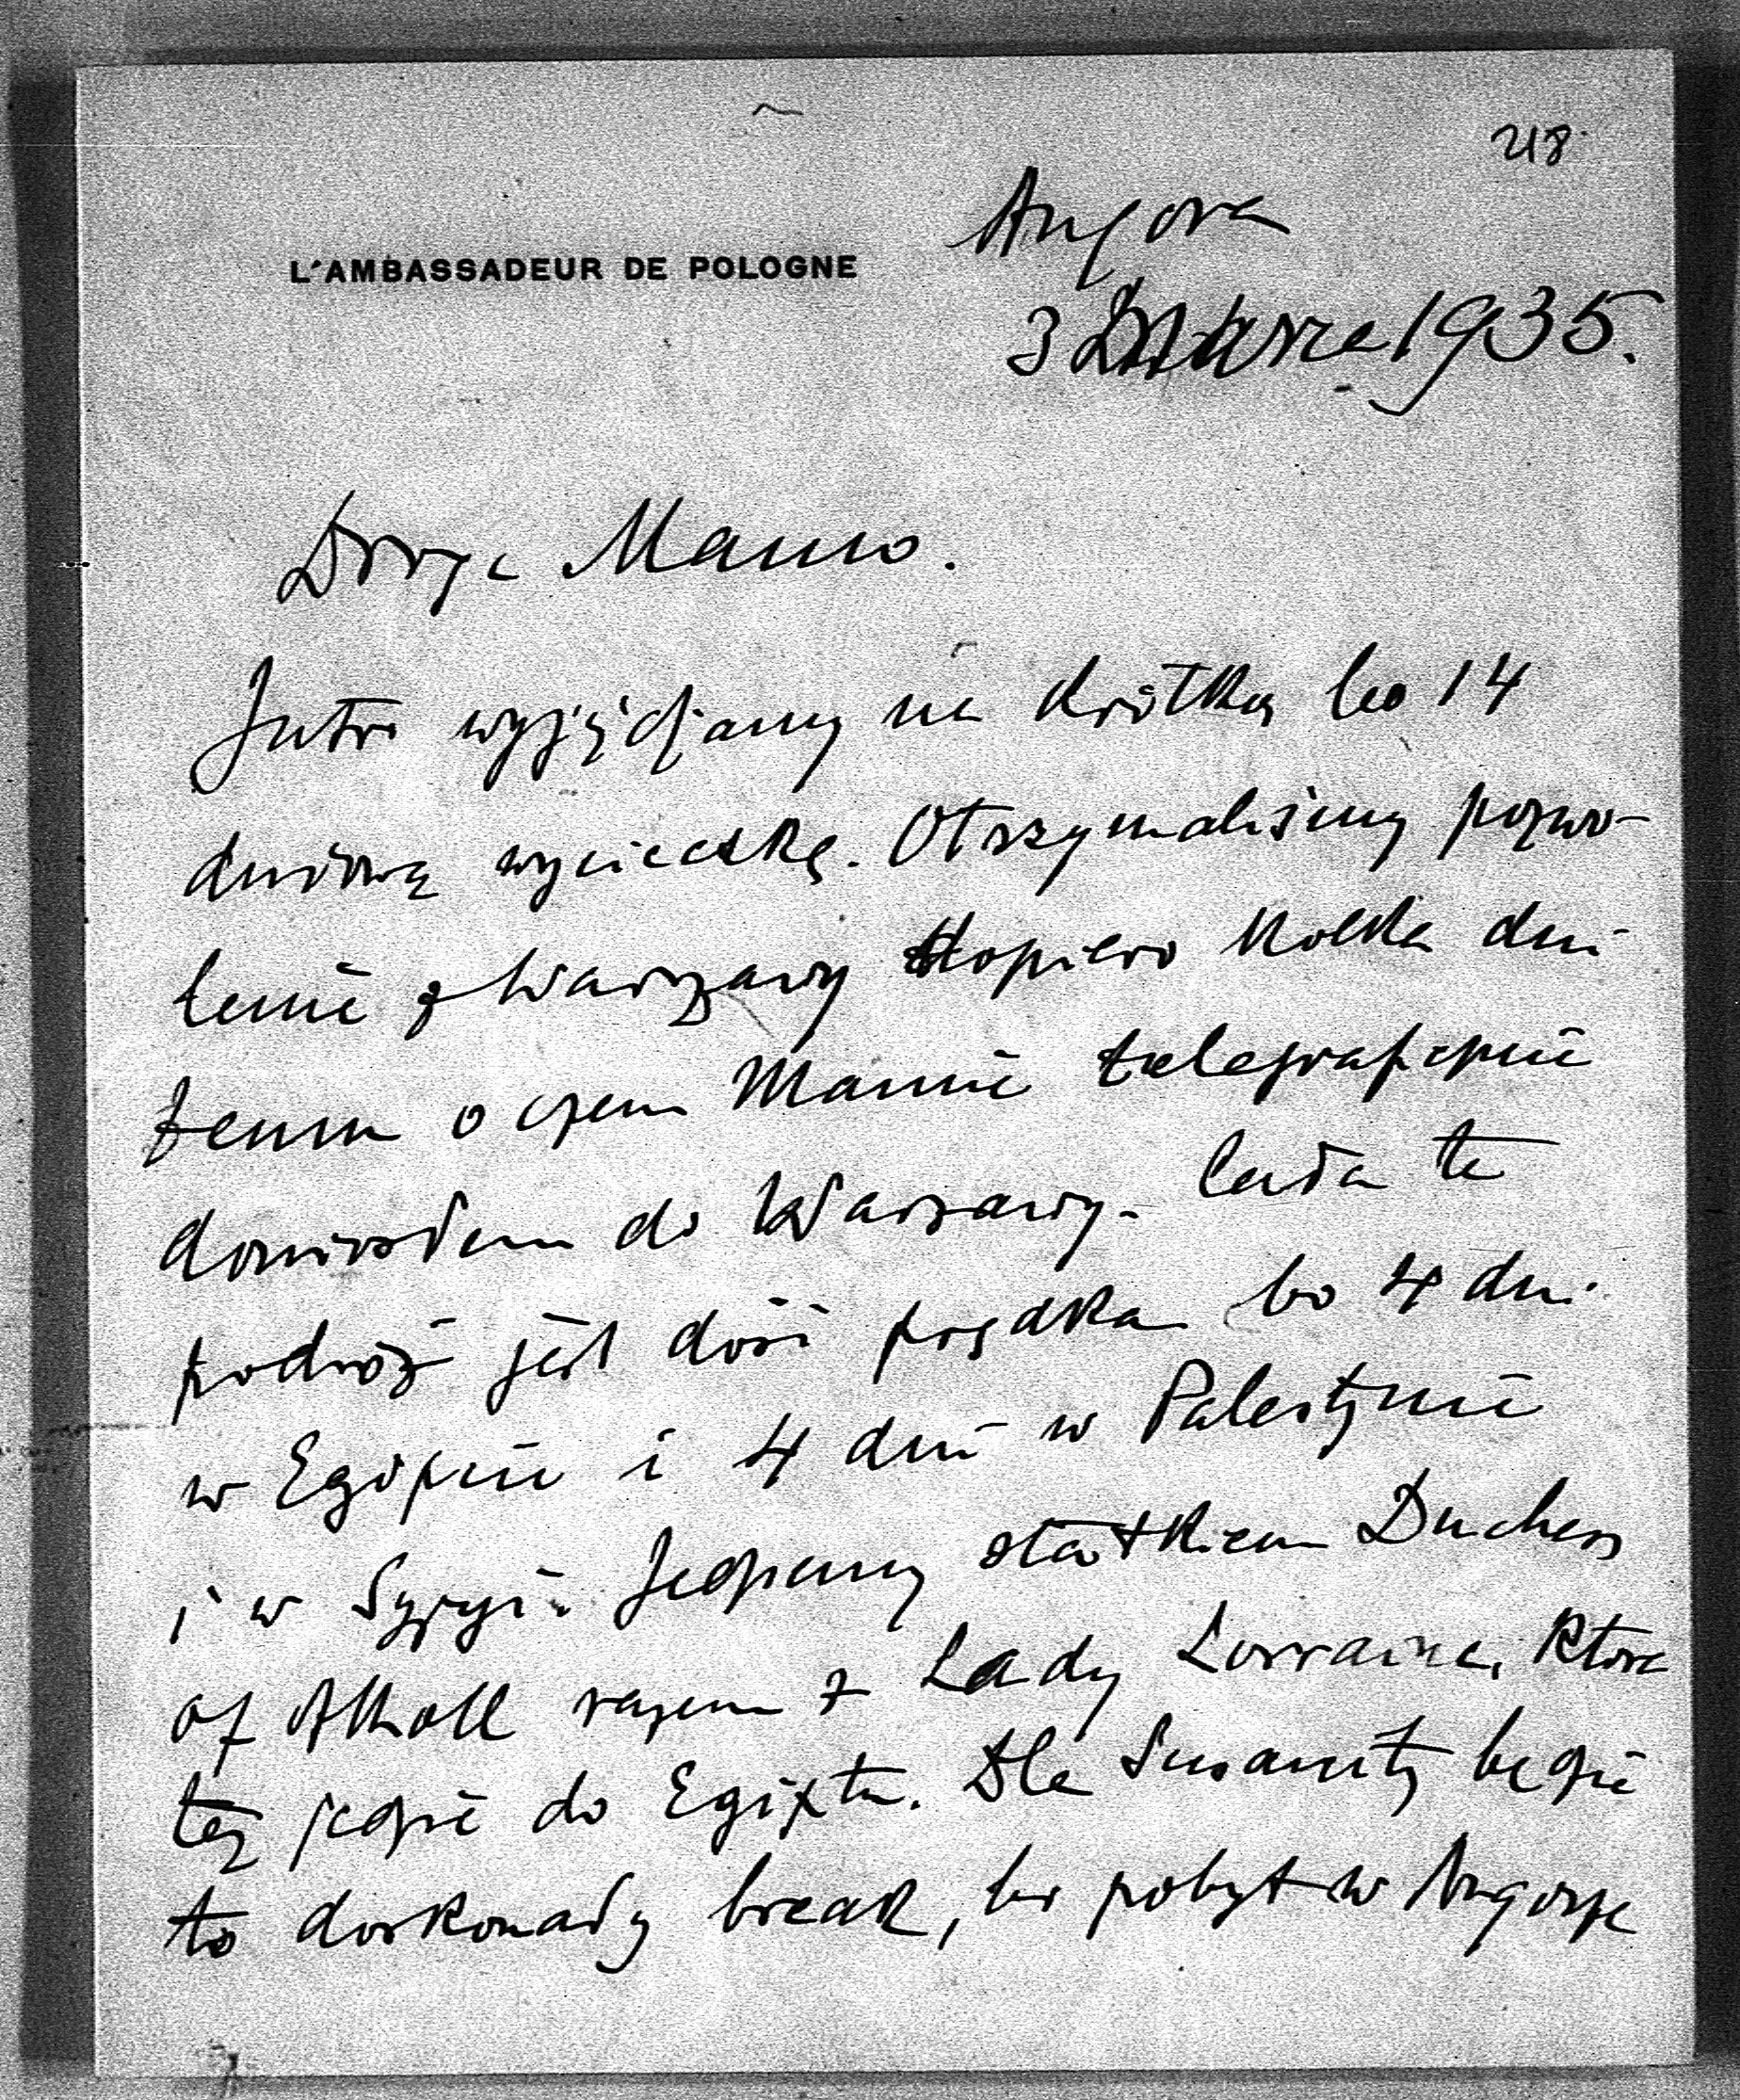 218
Angora
L'AMBASSADEUR DE POLOGNE
3 Marca 1935.
Droga Mamo.
Jutro wyjeżdżamy na krótką bo 14
dniową wycieczkę. Otrzymaliśmy pozwo-
lenie z Warszawy dopiero kilka dni
temu o czem Mamie telegraficznie
doniosłem do Warszawy. Cała ta
podróż jest dość prędka bo 4 dni
w Egipcie i 4 dni w Palestynie
i w Syryi. Jedziemy statkiem Duchess
of Atholl razem z Lady Lorraine, która
też jedzie do Egiptu. Dla Susanity będzie
to doskonały break, bo pobyt w Angorze